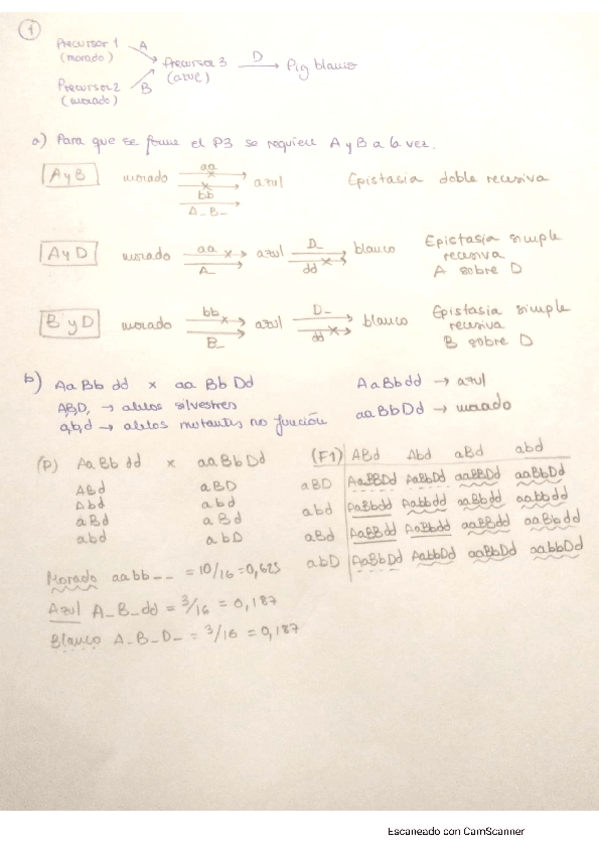 1
Precursor 1 A
(morado) Precursor 3 D Pig blanco
Precursor 2 B (azul)
(morado)
a) Para que se forme el P3 se requiere A y B a la vez.
aa
A y B morado azul Epistasia doble recesiva
bb
A_B_
A y D morado aa azul D_ blanco Epistasia simple
A_ dd recesiva
A sobre D
B y D morado bb azul D_ blanco Epistasia simple
B_ dd recesiva
B sobre D
b) AaBb dd x aa Bb Dd AaBbdd → azul
A,B,D, → alelos silvestres aaBbDd → morado
a,b,d → alelos mutantes no función
(P) AaBb dd x aaBbDd (F1) ABd Abd aBd abd
ABd aBD aBD AaBBDd AaBbDd aaBBDd aaBbDd
Abd abd abd AaBbdd Aabbdd aaBbdd aabbdd
aBd aBd aBd AaBBdd AaBbdd aaBBdd aaBbdd
abd abD abD AaBbDd AabbDd aaBbDd aabbDd
Morado aabb _ _ = 10/16 = 0,625
Azul A_B_dd = 3/16 = 0,187
Blanco A_B_D_ = 3/16 = 0,187
Escaneado con CamScanner